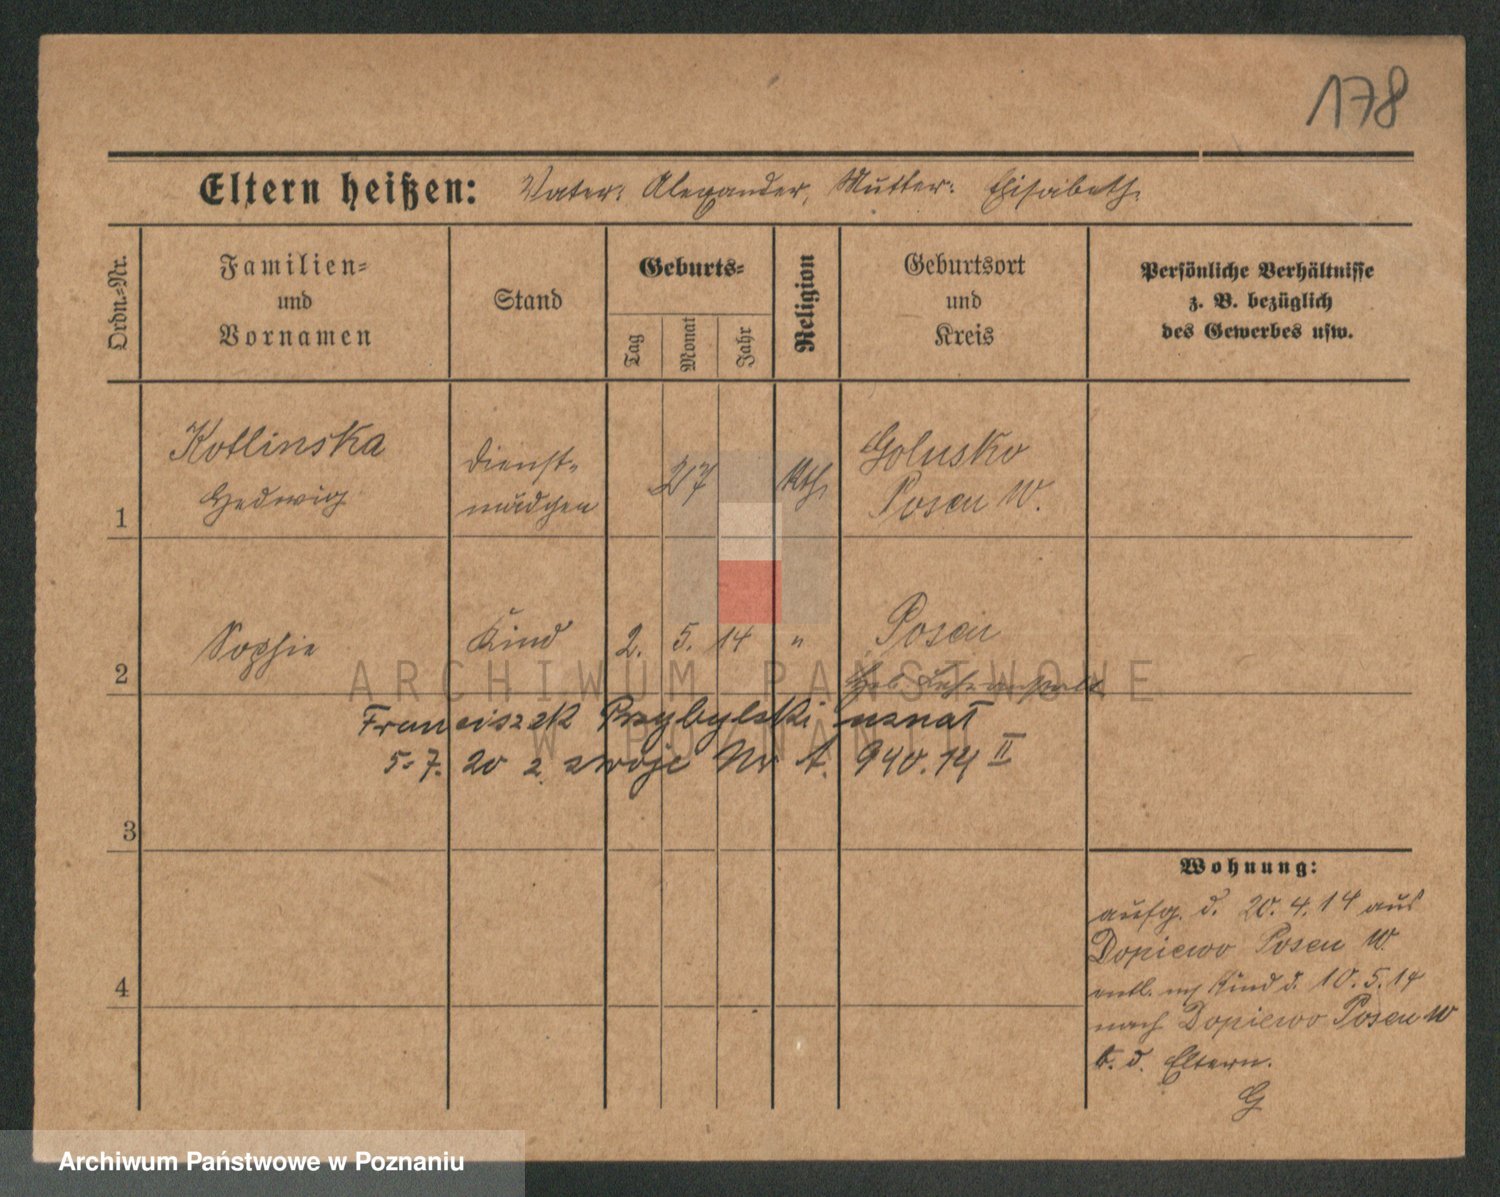 178
Eltern heißen: Vater: Alexander, Mutter: Elisabeth.
Ordn.-Nr.
Familien-
und
Vornamen
Stand
Geburts-
Tag
Monat
Jahr
Religion
Geburtsort
und
Kreis
Persönliche Verhältnisse
z. B. bezüglich
des Gewerbes usw.
1
Kotlinska
Hedwig
Dienst-
mädchen
27
kth.
Golusko
Posen W.
2
Sophie
Kind
2. 5. 14
"
Posen
Heb. Lehranstalt
Franciszek Przybylski uznał
5.7. 20 z. swoje Nr A. 940.14 II
3
4
Wohnung:
aufg. d. 20.4.14 aus
Dopiewo Posen W.
entl. m Kind d. 10.5.14
nach Dopiewo Posen W
b. d. Eltern.
G
ARCHIWUM PAŃSTWOWE
W POZNANIU
Archiwum Państwowe w Poznaniu